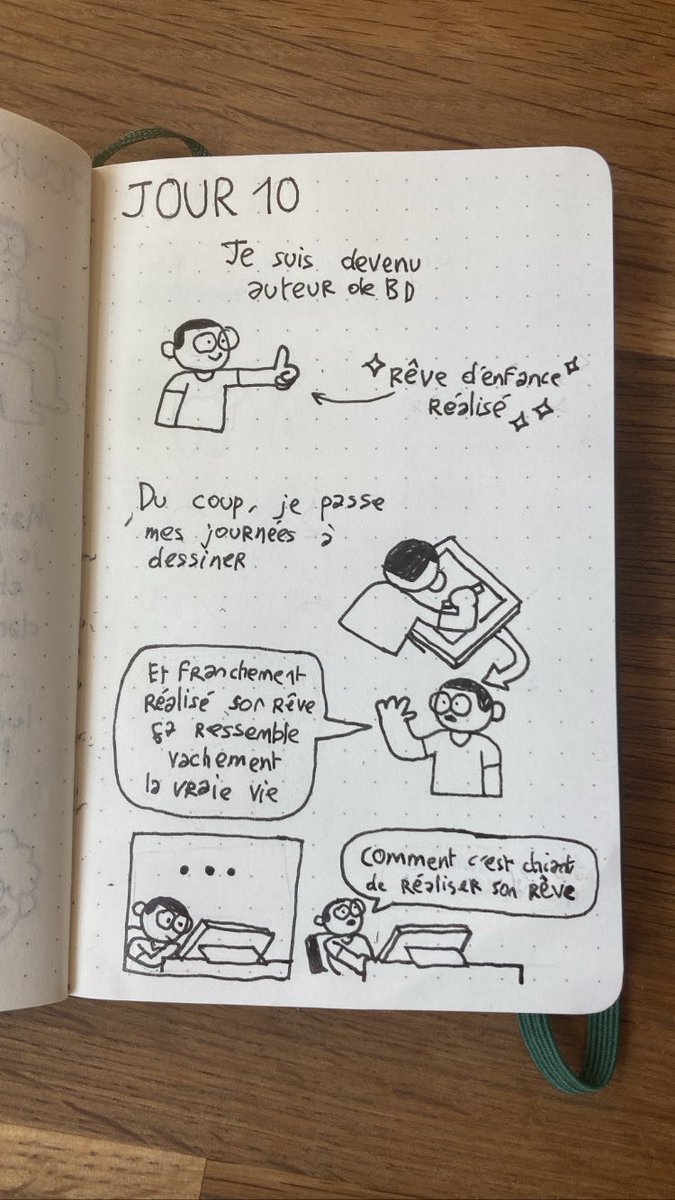 JOUR 10
Je suis devenu
auteur de BD
Rêve d'enfance
Réalisé
Du coup, je passe
mes journées à
dessiner
Et franchement
Réalisé son rêve
ça ressemble
vachement
la vraie vie
...
Comment c'est chiant
de réaliser son rêve